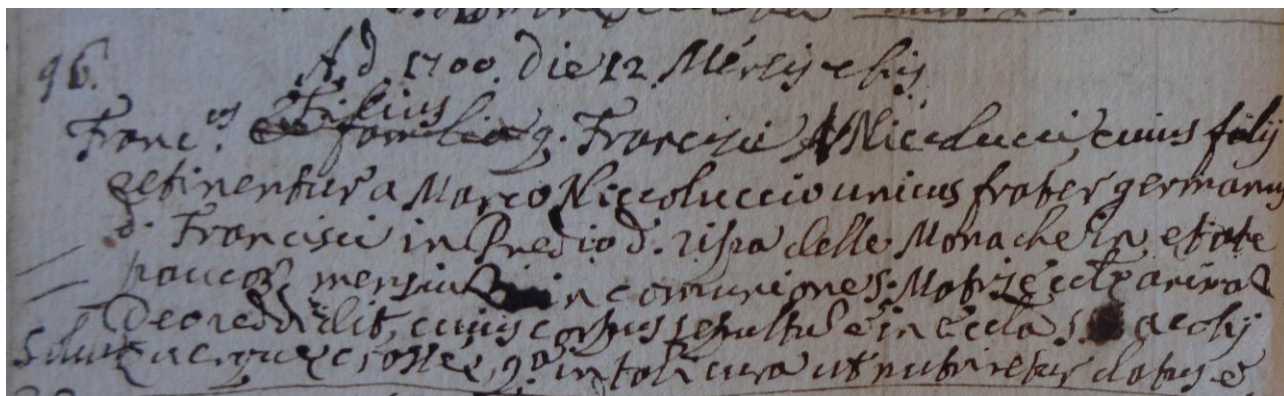 96.
A. d. 1700. die 12. Mensis
Franc.us Filius q. Francisci Niccolucci, cuius filij
retinentur a Marco Niccoluccio unicus frater germanus
d. Francisci in Predio d. ripa delle Monache in etate
paucor. mensium in comunione S. Matris eccle anima
Deo reddidit, cuius corpus sepultu è in eccla S.
q.a in tali cura ut nutriretur datus è